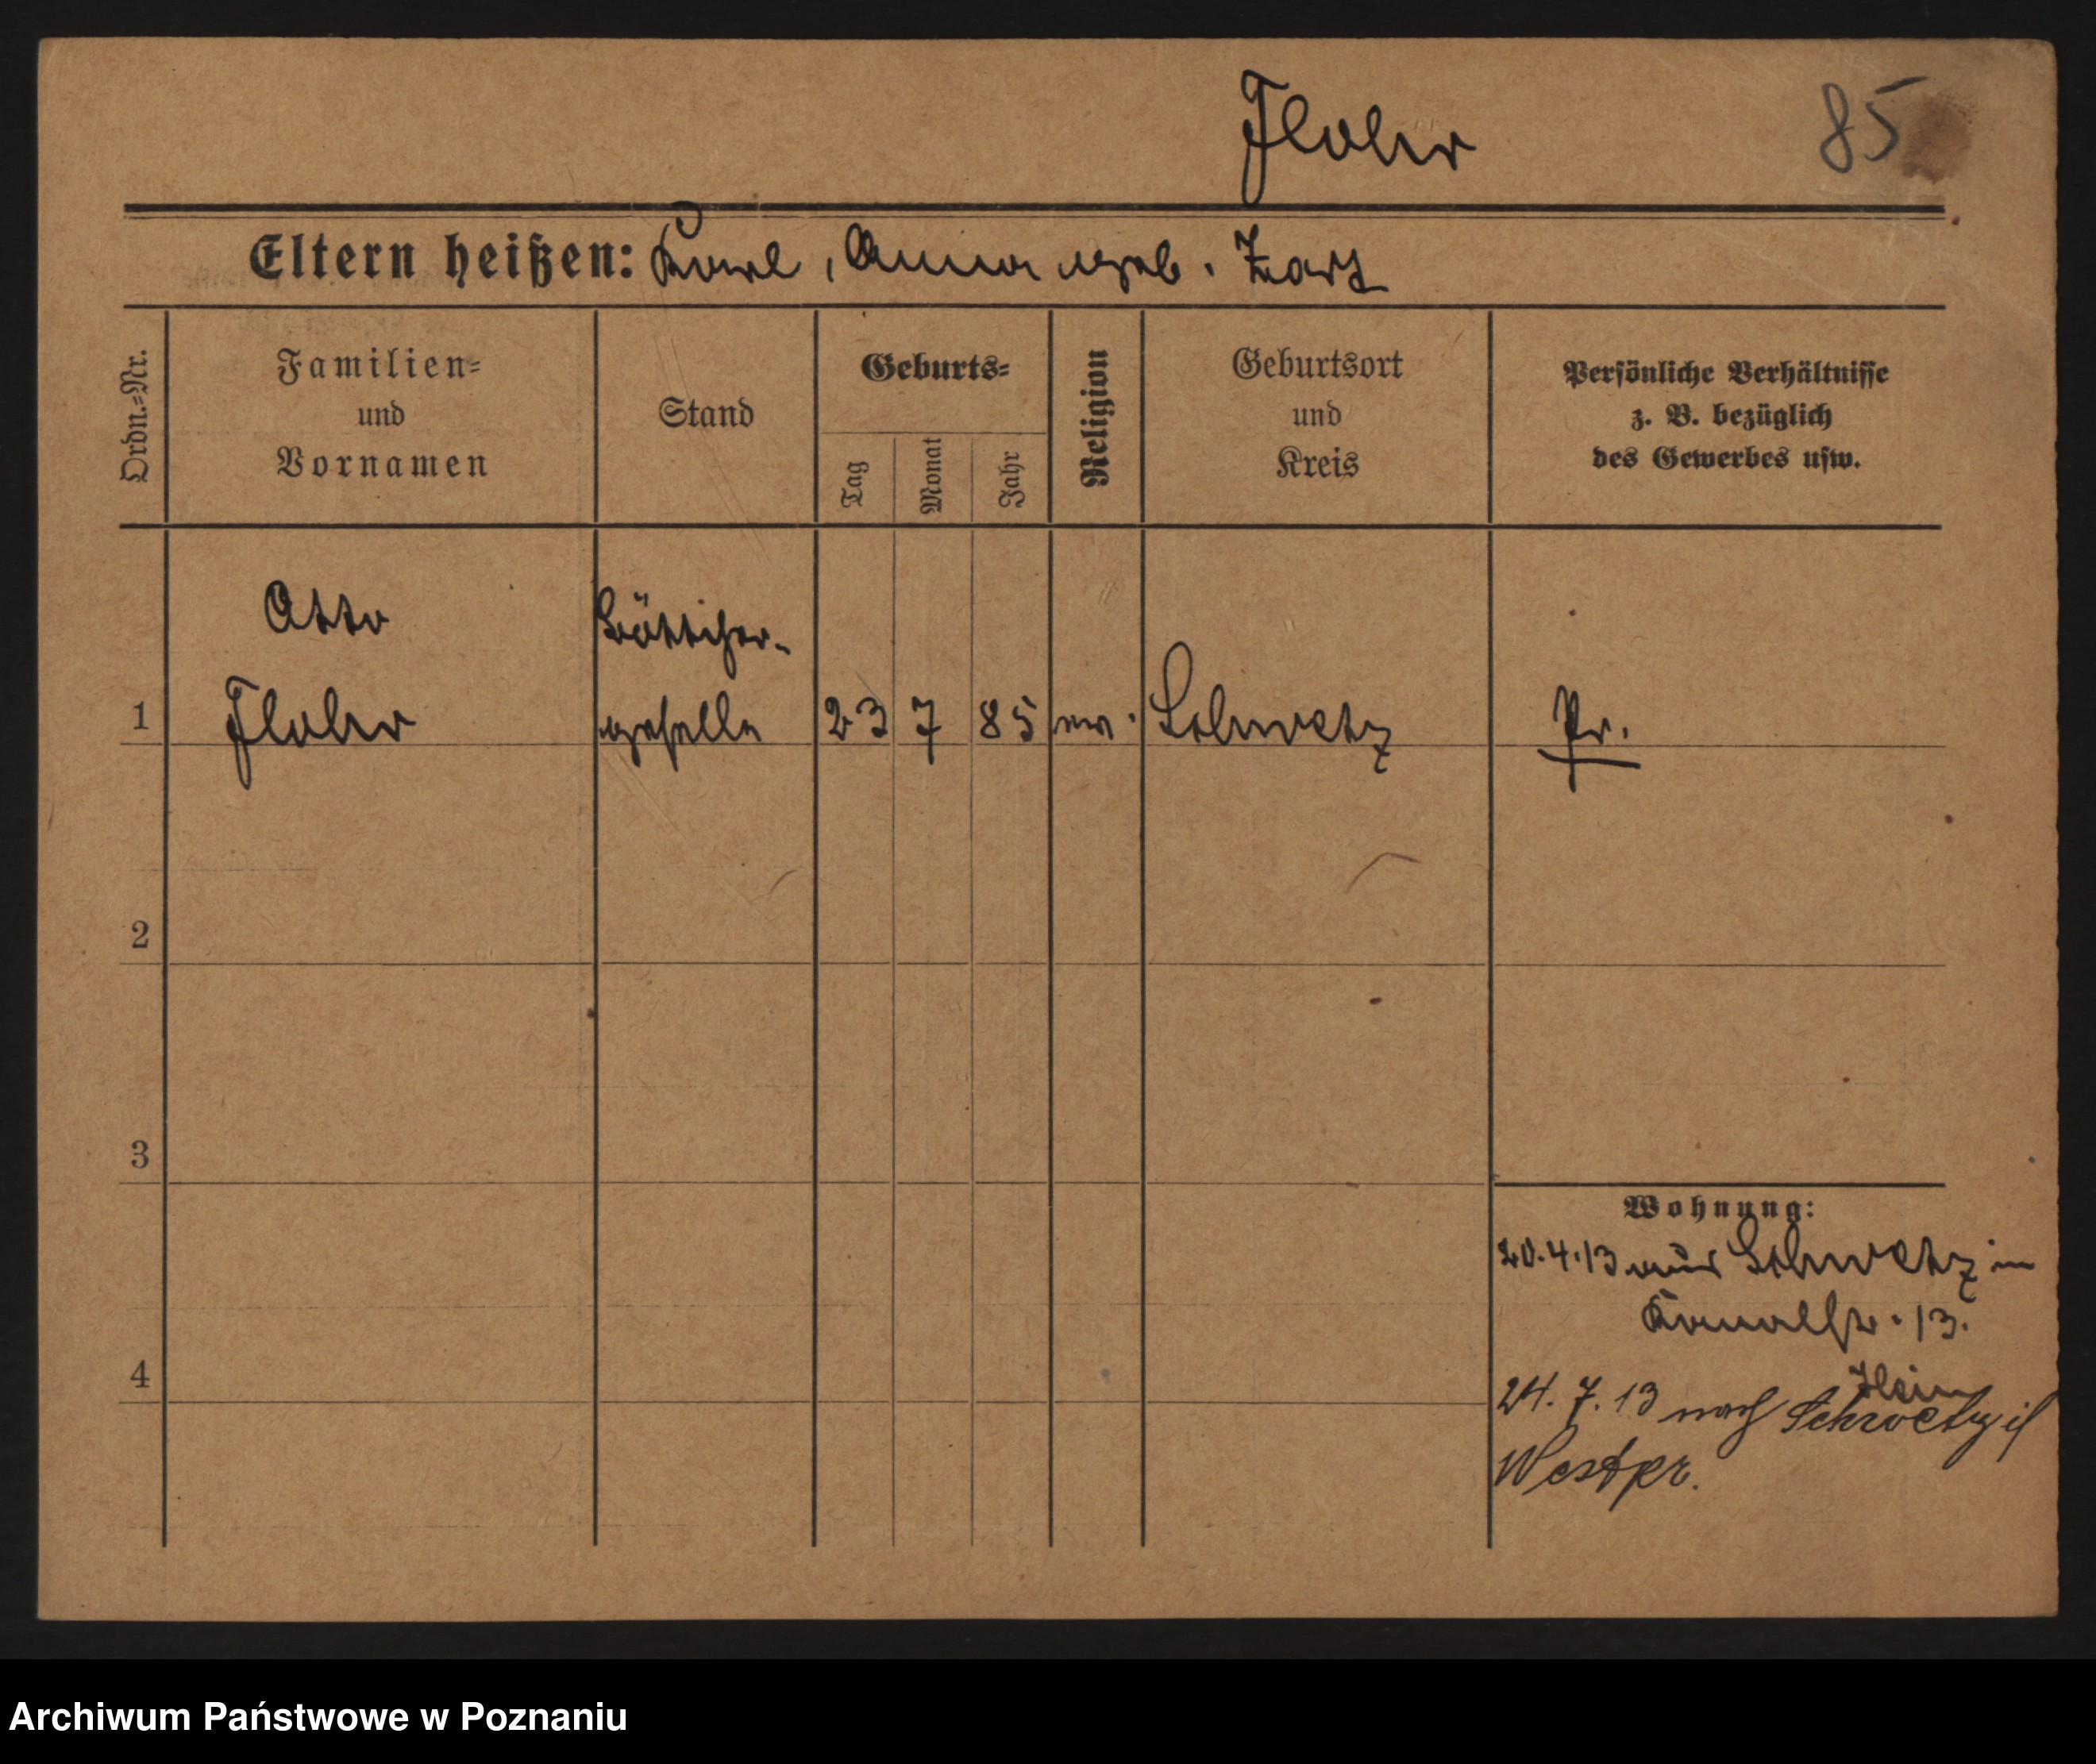 Flohr 85
Eltern heißen: Karl, Anna geb.
Ordn.-Nr. Familien- und Vornamen Stand Geburts- Tag Monat Jahr Religion Geburtsort und Kreis Persönliche Verhältnisse z. B. bezüglich des Gewerbes usw.
Otto Böttcher-
1 Flohr geselle 23 7 85 ev. Schwetz Pr.
2
3
Wohnung:
20.4.13 aus Schwetz in
Kanalstr. 13.
4
24. 7. 13 nach Schwetz
Westpr.
Archiwum Państwowe w Poznaniu